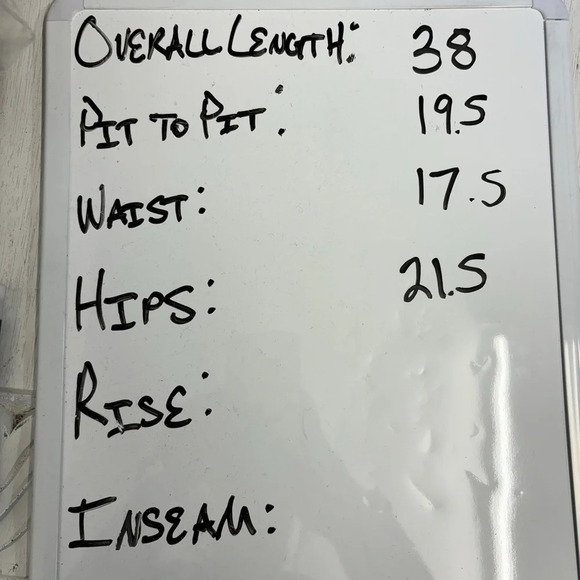 Overall Length: 38
Pit to Pit: 19.5
Waist: 17.5
Hips: 21.5
Rise:
Inseam: